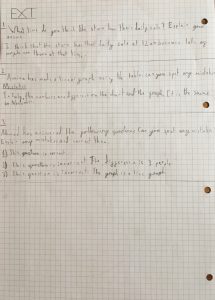 EXT
1. What time do you think the store has their daily sale? Explain your
answer.
I think that the store has their daily sale at 12 at because lots of
people are there at that time.
2. Amina has made a line graph using the table can you spot any mistakes
Mistakes
3.
Ahmed has answered the following questions. Can you spot any mistakes
Explain any mistakes and correct them.
1) This question is correct.
2) This question is incorrect. The difference is 3 people.
3) This question is incorrect. The graph is a line graph.